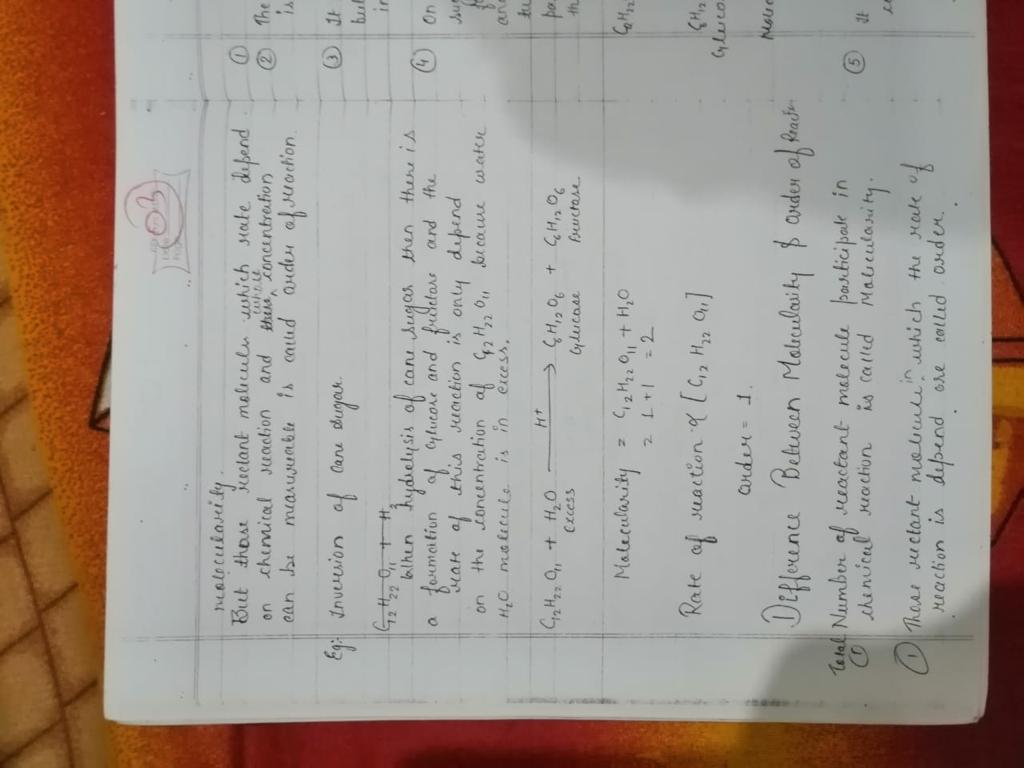 molecularity.
But those rectant molecules which rate depend
on chemical reaction and whose concentration
can be measureable is called order of reaction.
Eg: Inversion of Cane sugar.
C12H22O11 + H
When hydrolysis of cane sugar then there is
a formation of glucose and fructose and the
rate of this reaction is only depend
on the concentration of C12H22O11 because water
H2O molecule is in excess.
C12H22O11 + H2O H+ → C6H12O6 + C6H12O6
Excess Glucose Fructose.
Molecularity = C12H22O11 + H2O
= 1 + 1 = 2
Rate of reaction α [C12 H22 O11]
order = 1.
Difference Between Molecularity & order of Reactn
① Total Number of reactant molecule participate in
chemical reaction is called Molecularity.
① Those rectant molecule in which the rate of
reaction is depend are called order.
①
② The
is
③ It
but
in
④ On
su
and
pa
th
C12H22
C6H12
Gluco
Molec
⑤ It